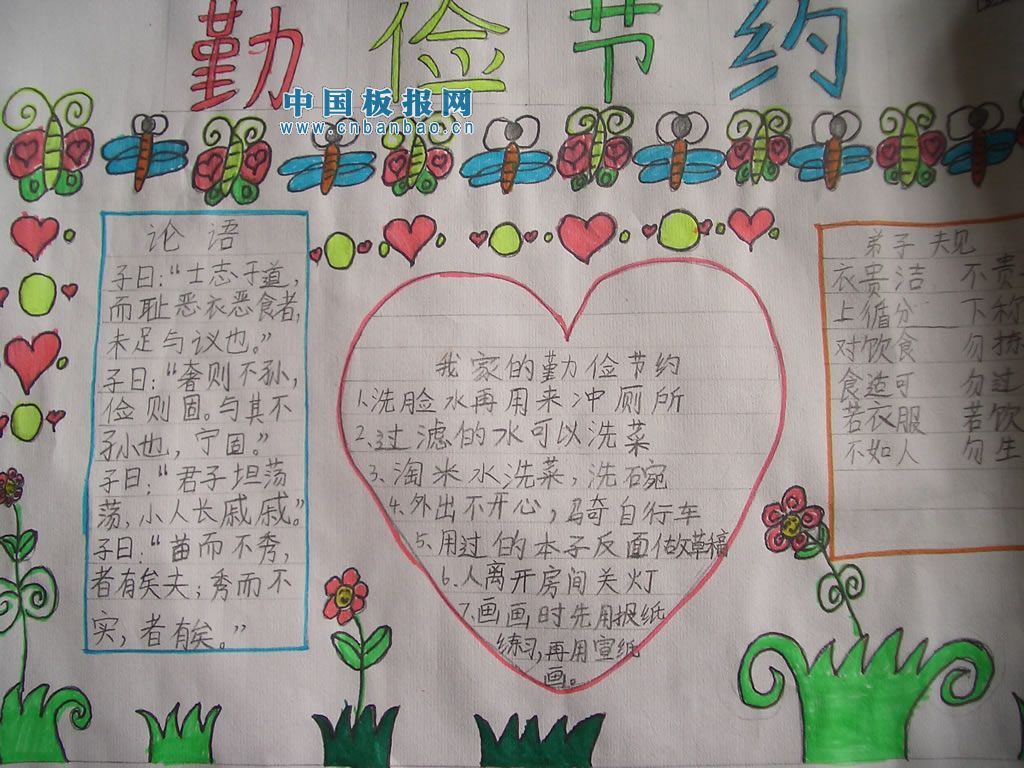 勤俭节约
中国板报网
www.cnbanbao.cn
论语
子曰：“士志于道，
而耻恶衣恶食者，
未足与议也。”
子曰：“奢则不孙，
俭则固。与其不
孙也，宁固。”
子曰：“君子坦荡
荡，小人长戚戚。”
子曰：“苗而不秀，
者有矣夫；秀而不
实，者有矣。”
我家的勤俭节约
1.洗脸水再用来冲厕所
2.过滤的水可以洗菜
3.淘米水洗菜，洗碗
4.外出不开心，骑自行车
5.用过的本子反面做草稿
6.人离开房间关灯
7.画画时先用报纸
练习，再用宣纸
画。
弟子夫见
衣贵洁 不贵
上循分 下称
对饮食 勿拣
食适可 勿过
若衣服 若饮
不如人 勿生